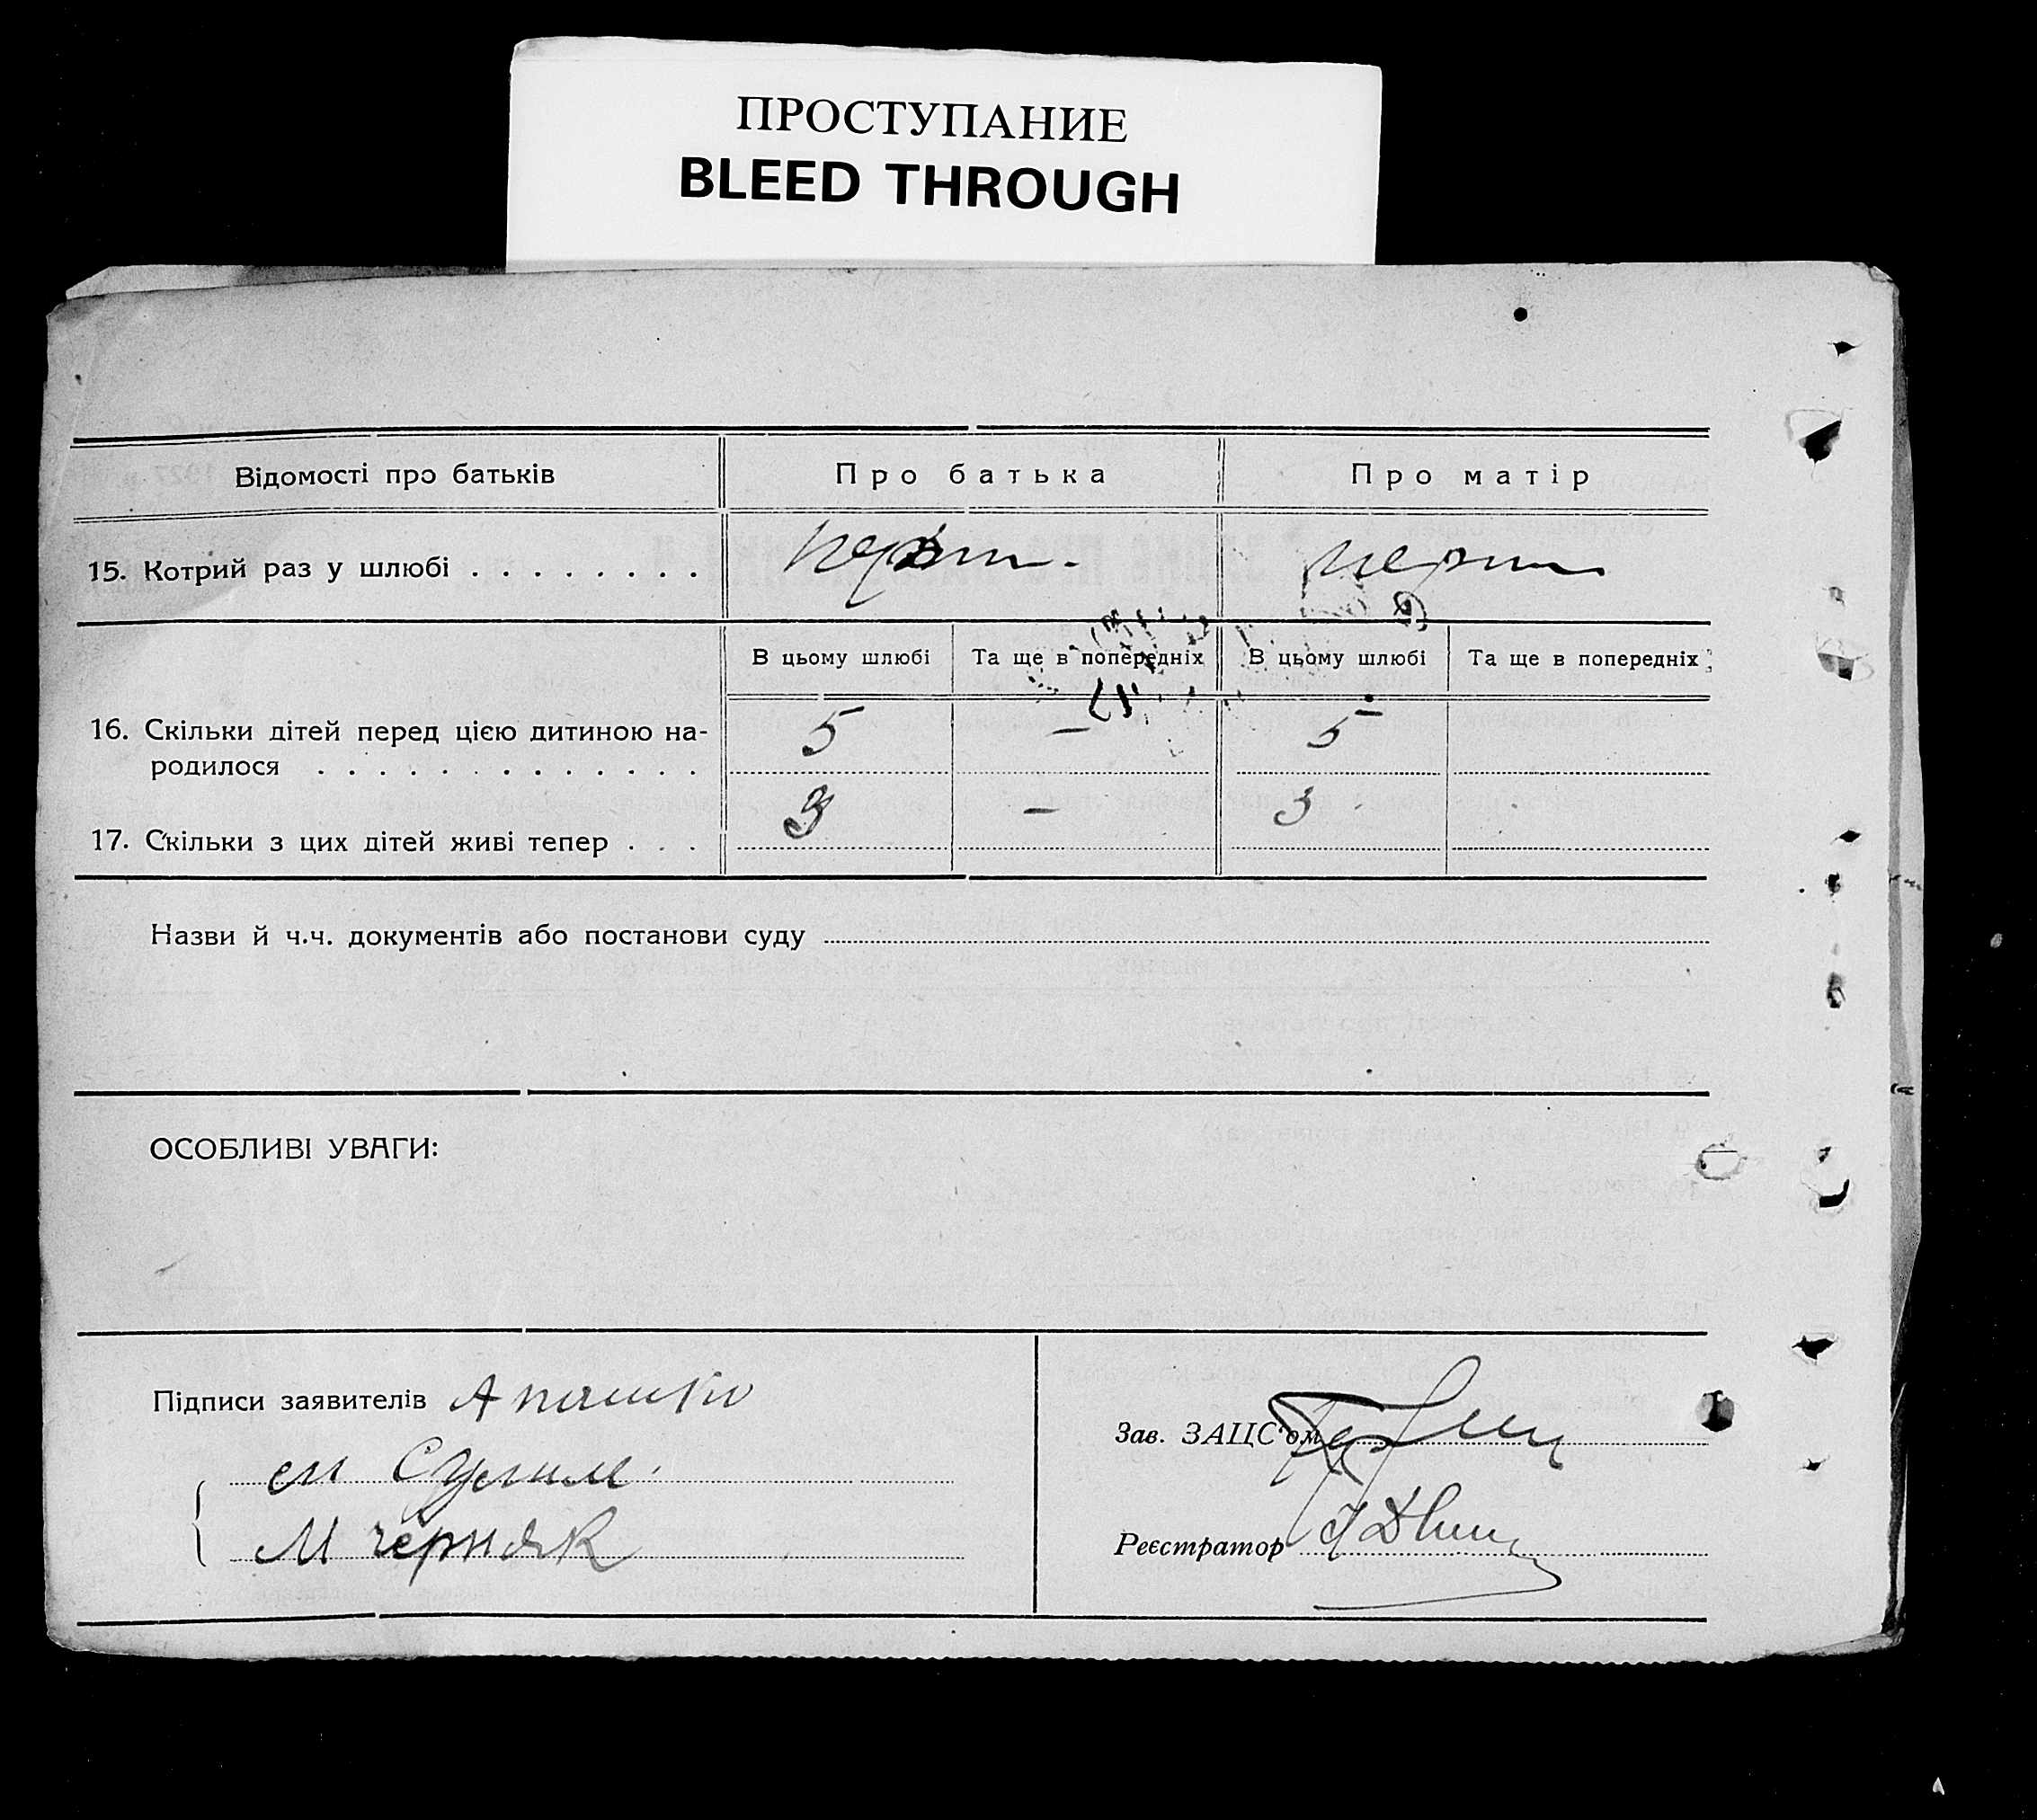 ПРОСТУПАНИЕ
BLEED THROUGH
Відомості про батьків Про батька Про матір
15. Котрий раз у шлюбі . . . . . . . .
В цьому шлюбі Та ще в попередніх В цьому шлюбі Та ще в попередніх
16. Скільки дітей перед цією дитиною на- 5 – 5
родилося . . . . . . . . . . . . .
17. Скільки з цих дітей живі тепер . . . 3 – 3
Назви й ч.ч. документів або постанови суду
ОСОБЛИВІ УВАГИ:
Підписи заявителів
Зав. ЗАЦС'ом
М Черняк
Реєстратор